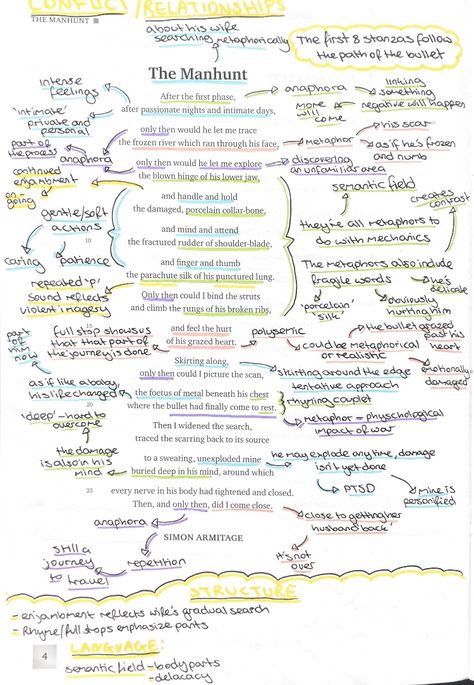 CONFLICT / RELATIONSHIPS
THE MANHUNT
about his wife
searching metaphorically
The first 8 stanzas follow
the path of the bullet
The Manhunt
intense
feelings
After the first phase,
after passionate nights and intimate days,
anaphora
more
will
come
linking
something
negative will happen
'intimate'
private and
personal
only then would he let me trace
the frozen river which ran through his face,
metaphor
his scar
as if he's frozen
and numb
part of
the process
anaphora
only then would he let me explore
the blown hinge of his lower jaw,
discovering
an unfamiliar area
continued
enjambment
on-
going
semantic field
creates
contrast
and handle and hold
the damaged, porcelain collar-bone,
gentle/soft
actions
they're all metaphors to
do with mechanics
10
and mind and attend
the fractured rudder of shoulder-blade,
caring
patience
The metaphors also include
fragile words
and finger and thumb
the parachute silk of his punctured lung.
he's
delicate
'porcelain'
'silk'
obviously
hurting him
repeated 'p'
sound reflects
violent imagery
Only then could I bind the struts
and climb the rungs of his broken ribs,
part
of
him
now
full stop shows us
that that part of
the journey is done
15
and feel the hurt
of his grazed heart.
polysemic
the bullet grazed
past his
heart
could be metaphorical
or realistic
emotionally
damaged
Skirting along,
only then could I picture the scan,
skirting around the edge
tentative approach
as if like a baby,
his life changed
the foetus of metal beneath his chest
20
where the bullet had finally come to rest.
rhyming couplet
metaphor = physchological
impact of war
'deep' - hard to
overcome
Then I widened the search,
traced the scarring back to its source
the damage
is also in his
mind
to a sweating, unexploded mine
buried deep in his mind, around which
he may explode any time, damage
isn't yet done
PTSD
mine is
personified
25
every nerve in his body had tightened and closed.
Then, and only then, did I come close.
anaphora
close to getting her
husband back
SIMON ARMITAGE
it's not
over
still a
journey
to travel
repetition
STRUCTURE
- enjambment reflects wife's gradual search
- Rhyme/full stops emphasize parts
4
LANGUAGE:
semantic field - body parts
- delacacy